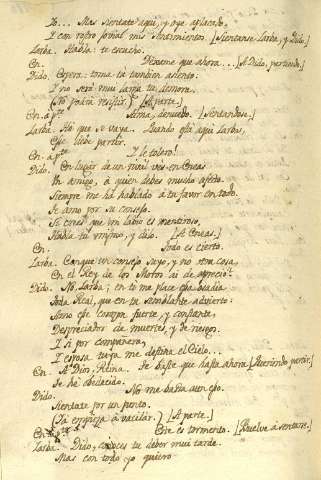 Yo... Mas sientate aquí, y oye aplacado,
I con rostro jovial mis sentimientos. [Sientanse Larba, y Dido]
Larba. Habla: te escucho.
En. Dexame que ahora... [A Dido, partiendo.]
Dido. Espera: toma tu tambien asiento:
I no será muy larga tu demora.
(No podrá resistir.) [A parte.]
En. a pte Alma, denuedo. [Sentandose.]
Larba. Ah que se vaya. Quando está aquí Larbas,
Ese debe partir.
En. a pte I le tolero!
Dido. En lugar de un rival ves en Eneas
Un amigo, á quien debes mucho afecto.
Siempre me há hablado á tu favor en todo.
Te amo por su consejo.
Si crees que mi labio es mentiroso,
Habla tú mismo, y dilo. [A Eneas.]
En. Todo es cierto.
Larba. Conque un consejo suyo, y no otra cosa,
En el Rey de los Moros ai de aprecio?
Dido. No, Larba; en ti me place esa osadia
Toda Real, que en tu semblante advierto:
Amo ese corazon fuerte, y constante,
Despreciador de muertes, y de riesgos.
I si por compañera,
I esposa tuya me destina el Cielo...
En. A Dios, Reina. Te baste que hasta ahora [Queriendo partir.]
Te há obedecido.
Dido. No me basta aun eso.
Sientate por un punto.
(Yá empieza á vacilar.) [A parte.]
En. a pte Este es tormento. [Vuelve á sentarse.]
Larba. Dido, conoces tu deber mui tarde.
Mas con todo yo quiero